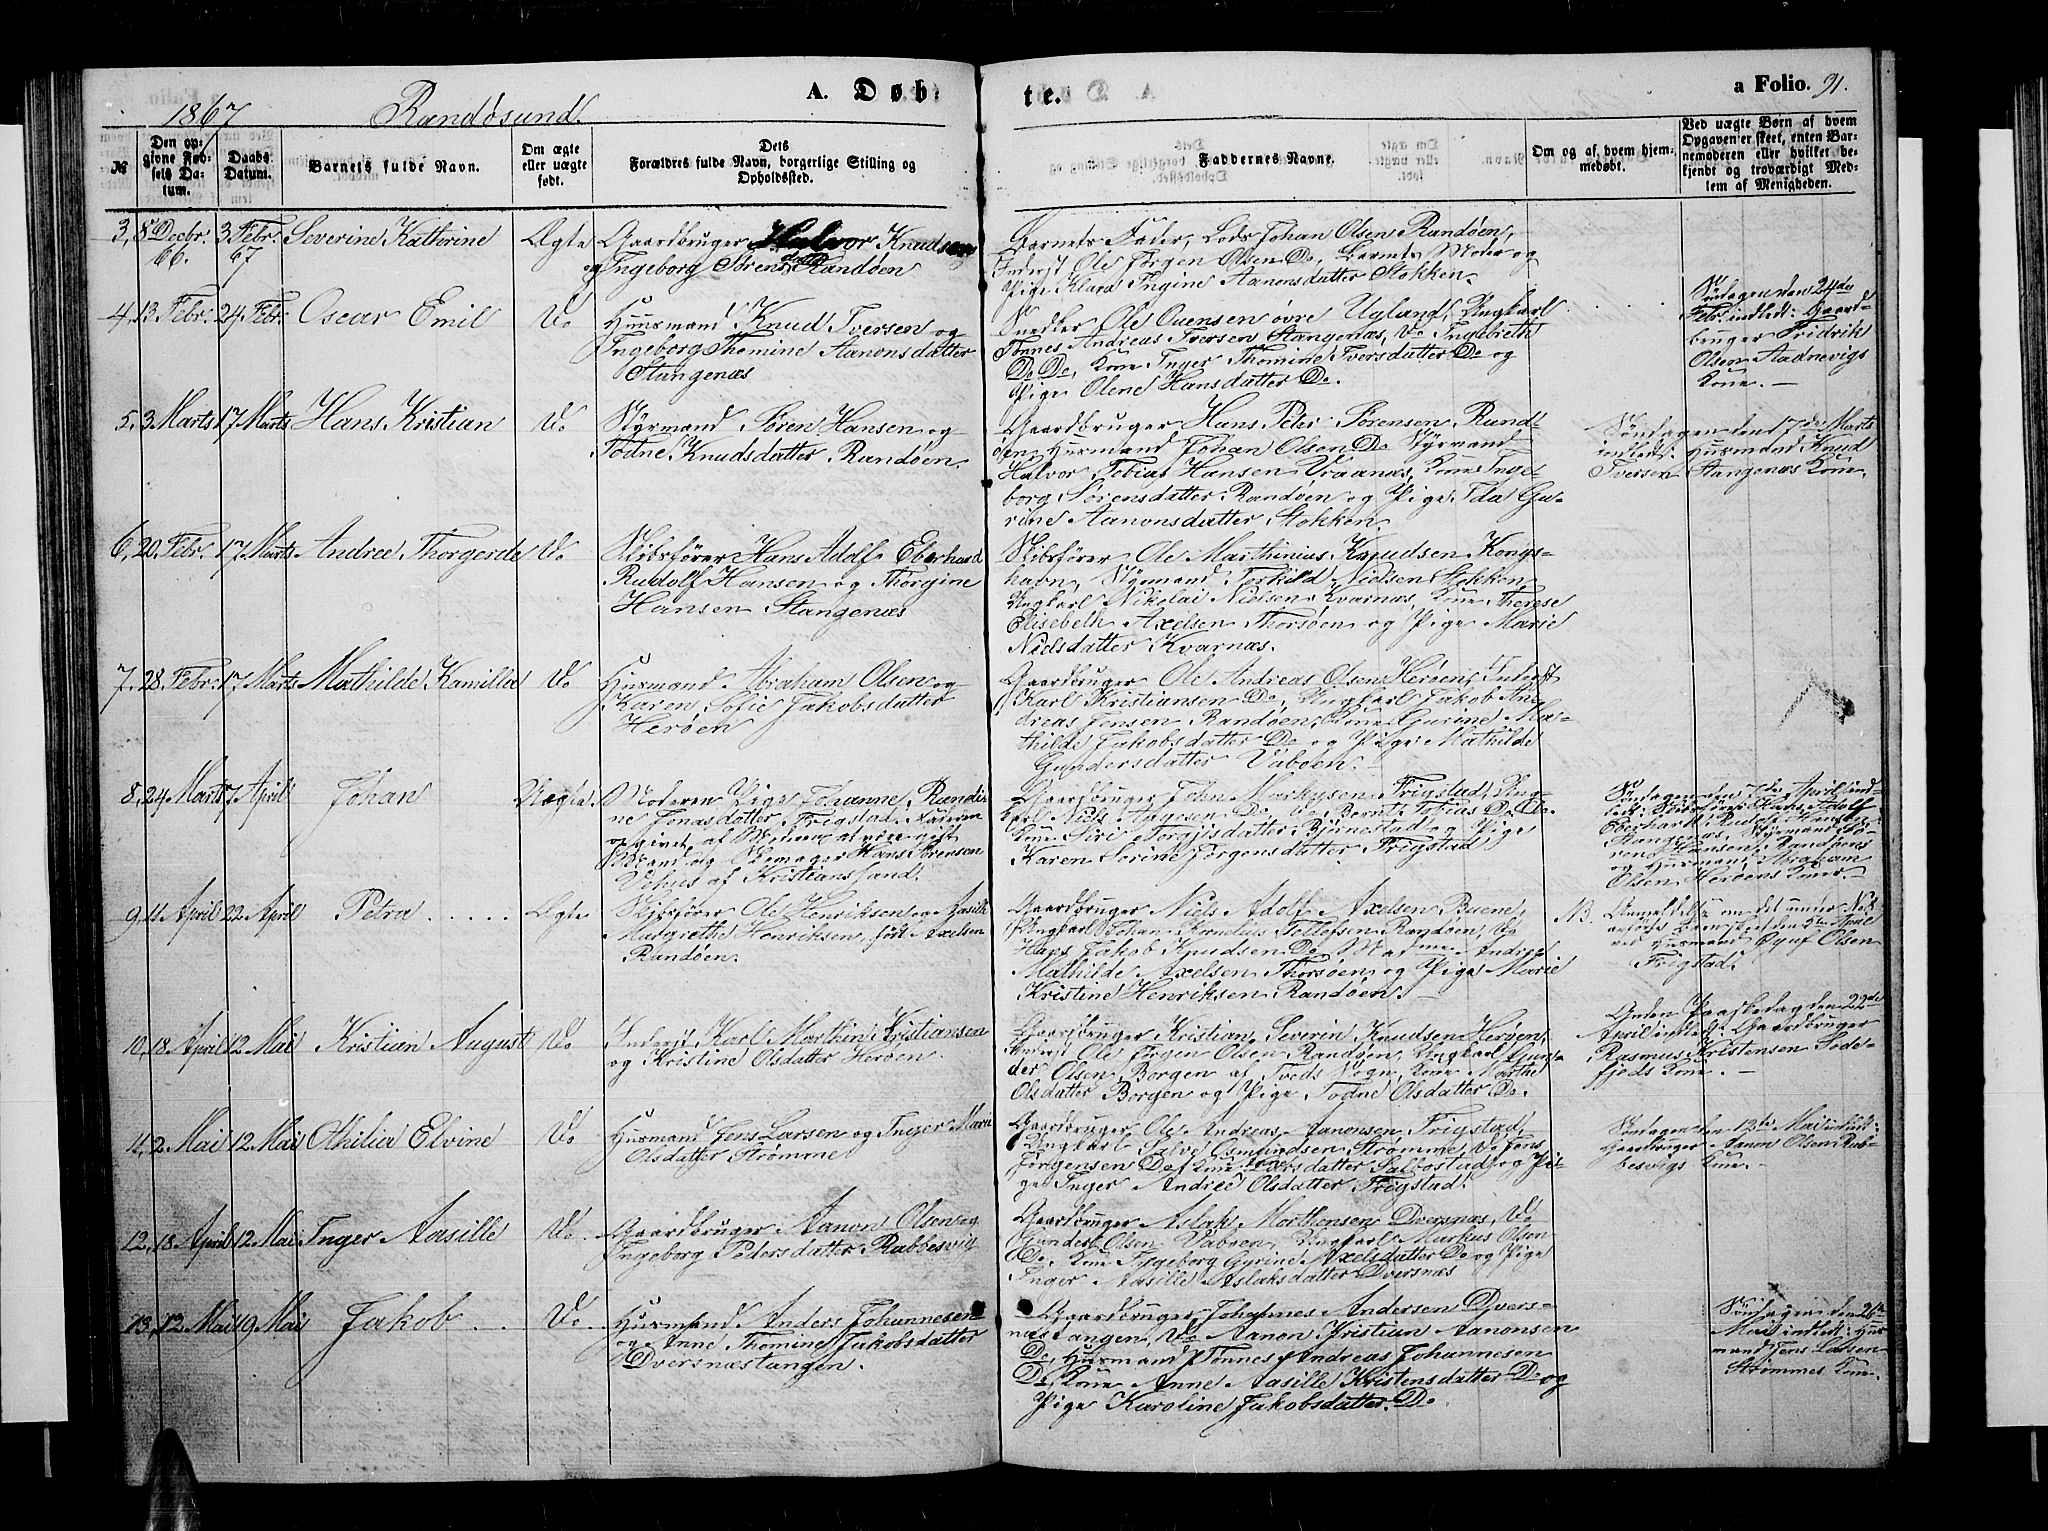 A. Døb-
te.
a Folio. 91.
1867 Randøsund.
№
Den op-
givne Fød-
sels Da-
tum.
Daabs
Datum.
Barnets fulde Navn.
Om ægte
eller uægte
født.
Dets
Forældres fulde Navn, borgerlige Stilling og
Opholdssted.
Faddernes Navne.
Om og af hvem hjem-
medøbt.
Ved uægte Børn af hvem
Opgaven er skeet, enten Bar-
nemoderen eller hvilket be-
kjendt og troværdigt Med-
lem af Menigheden.
3, 8 Decbr. 3 Febr. Severine Katherine Ægte Gaardbruger Halvor Knudsen
66. 67 og Ingeborg Sørensdatter Randøen
Barnets Fader, Lods Johan Olsen Randøen,
Inderst Ole Jørgen Olsen Do, Barnets Moder og
Pige Klara Ingine Aanonsdatter Stokken.
4, 13 Febr. 24 Febr. Oscar Emil Do Huusmand Knud Iversen og
Ingeborg Thomine Aanonsdatter
Stangenæs
Snedker Ole Ouensen øvre Ugland, Ungkarl
Tønnes Andreas Iversen Stangenæs, Do Ingebreth
Do Do, Kone Inger Thomine Iversdatter Do og
Pige Olene Hansdatter Do.
Søndagen den 24de
Febr. indledt: Gaard-
bruger Fridrik
Olsen Aadnevigs
Kone. —
5, 3 Marts 17 Marts Hans Kristian Do Styrmand Søren Hansen og
Todne Knudsdatter Randøen.
Gaardbruger Hans Peter Sørensen Rand-
øen, Husmand Johan Olsen Do Styrmand
Halvor Tobias Hansen Vraanæs, Kone Inge-
borg Sørensdatter Randøen og Pige Ida Gu-
rine Aanonsdatter Stokken.
Søndagen den 17de Marts
indledt: Husmand Knud
Iversen Stangenæs Kone.
6, 20 Febr. 17 Marts Andrea Thorgerde Do Skibsfører Hans Adolf Eberhard
Rudolf Hansen og Thorgine
Hansen Stangenæs
Skibsfører Ole Marthinius Knudsen Kongs-
havn, Styrmand Terkild Nielsen Stokken
Ungkarl Nikolai Nielsen Kvarnæs, Kone Therese
Elisebeth Axelsen Thorsøen og Pige Marie
Nielsdatter Kvarnæs.
7, 28 Febr. 17 Marts Mathilde Kamilla Do Husmand Abraham Olsen og
Karen Sofie Jakobsdatter
Herøen
Gaardbruger Ole Andreas Olsen Herøen, Inderst
Karl Kristiansen Do, Ungkarl Jakob An-
dreas Jensen Randøen, Kone Gurine Ma-
thilde Jakobsdatter Do og Pige Mathilde
Gundersdatter Vabøen. —
8, 24 Marts 7 April Johan Uægte. Moderen Pige Johanne Randi-
ne Jonasdatter Frigstad. Faderen
opgivet af Moderen at være gift
Mand og Skomager Hans Sørensen
Vehus af Kristianssand.
Gaardbruger John Markusen Frigstad, Ung-
karl Niels Aagesen Do, Do Bernt Tobias Do Do.
Kone Siri Torgjisdatter Bjørnestad og Pige
Karen Serine Jørgensdatter Frigstad.
Søndagen den 7de April ind-
ledt: Skibsfører Hans Adolf
Eberhardt Rudolf Hansen
Stangenæs, Styrmand Sø-
ren Hansen Randøens
og Husmand Abraham
Olsen Herøens Koner.
9, 11 April 22 April Petra Ægte Skibsfører Ole Henriksen og Aasille
Margrethe Henriksen, født Axelsen
Randøen.
Gaardbruger Niels Adolf Axelsen Buene,
Ungkarl Johan Kornelius Tellefsen Randøen, Do
Hans Jakob Knudsen Do Madme Andrea
Mathilde Axelsen Thorsøen og Pige Marie
Kristine Henriksen Randøen. —
NB. Anmeldelse om det under No 8
anførte Barn skeet den 5te April
ved Husmand Oluf Olsen
Frigstad.
10, 18 April 12 Mai Kristian August Do Inderst Karl Marthin Kristiansen
og Kristine Olsdatter Herøen.
Gaardbruger Kristian Severin Knudsen Herøen,
Inderst Ole Jørgen Olsen Randøen, Ungkarl Gun-
der Olsen Borgen af Tveds Sogn, Kone Marthe
Olsdatter Borgen og Pige Todne Olsdatter Do.
Anden Paaskedag den 22de
April indledt: Gaardbruger
Rasmus Kristensen Sode-
fjeds Kone. —
11, 2 Mai 12 Mai Othilia Elvine Do Husmand Jens Larsen og Inger Marie
Olsdatter Strømme
Gaardbruger Ole Andreas Aanonsen Frigstad,
Ungkarl Salve Osmundsen Strømme, Do Jens
Jørgensen Do, Kone Larsdatter Salbostad, og Pi-
ge Inger Andrea Olsdatter Frigstad.
Søndagen den 12te Mai indledt:
Gaardbruger Aanon Olsen Rab-
besvigs Kone. —
12, 18 April 12 Mai Inger Aasille Do. Gaardbruger Aanon Olsen og
Ingeborg Pedersdatter Rabbesvig
Gaardbruger Aslak Morthensen Dversnæs, Do
Gunder Olsen Vabøen, Ungkarl Markus Olsen
Do, Kone Ingeborg Gurine Axelsdatter Do og Pige
Inger Aasille Aslaksdatter Dversnæs
13, 12 Mai 19 Mai Jakob Do. Husmand Anders Johannesen
og Anne Thomine Jakobsdatter
Dversnæstangen.
Gaardbruger Johannes Andersen Dvers-
næstangen, Do Aanon Kristian Aanonsen
Do, Husmand Tønnes Andreas Johannesen
Do, Kone Anne Aasille Kristensdatter Do og
Pige Karoline Jakobsdatter Do
Søndagen den 26de
Mai indledt: Hus-
mand Jens Larsen
Strømmes Kone.